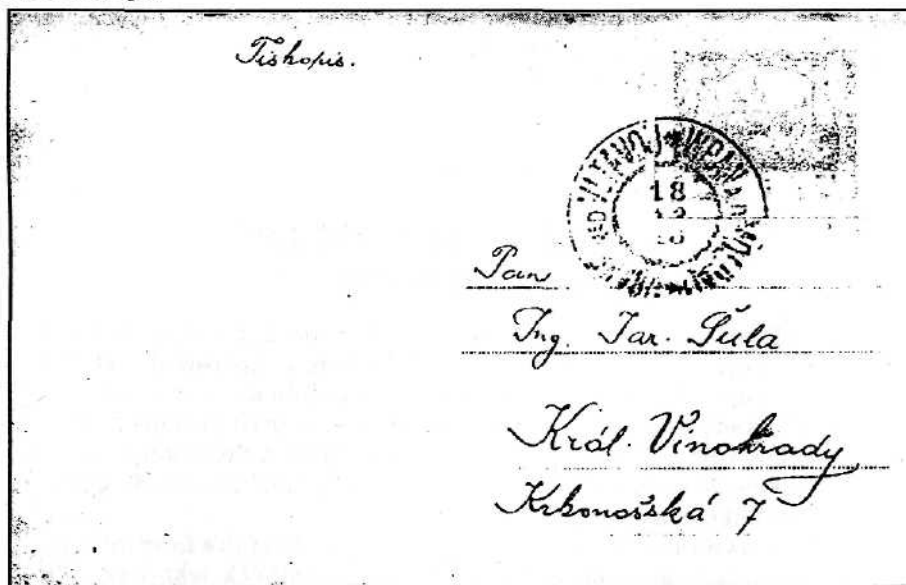 Tiskopis.
18
Pan
Ing. Jar. Šula
Král. Vinohrady
Krkonošská 7